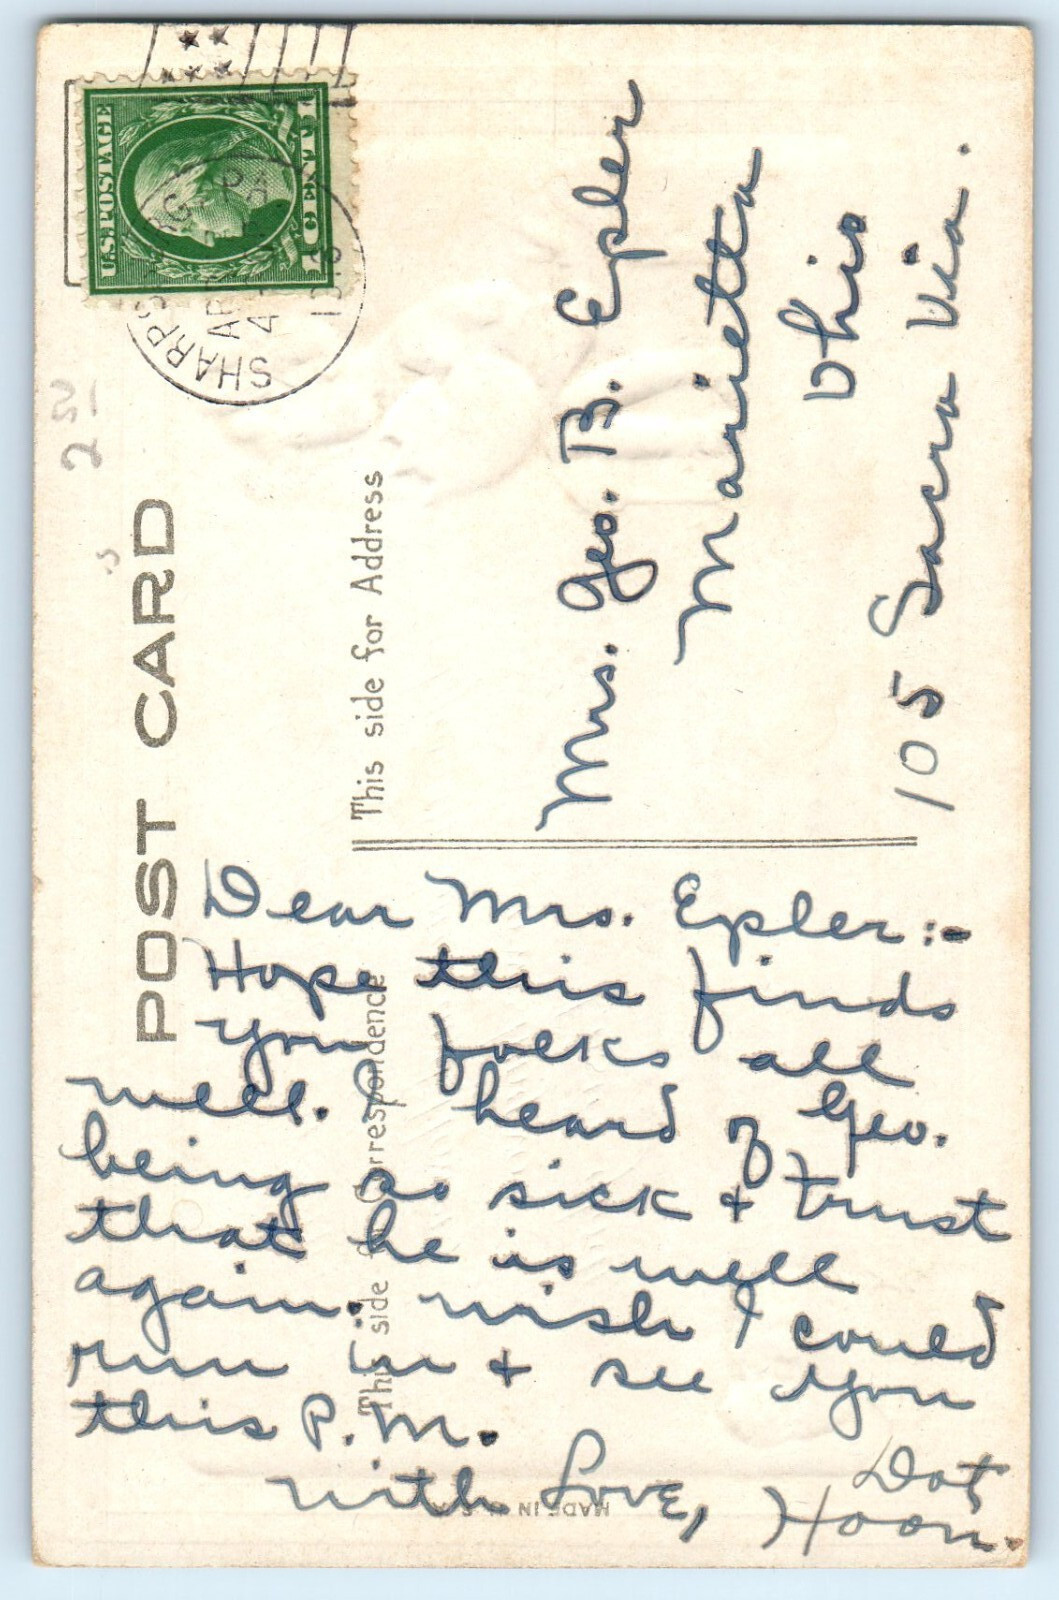 U.S. POSTAGE
1 CENT 1
SHARPSBURG PA
POST CARD
This side for Correspondence
This side for Address
Dear Mrs. Epler:-
Hope this finds
you folks all
well. I heard of Geo.
being so sick + trust
that he is well
again. wish I could
run in + see you
this P.M.
with Love, Dot
Hoon.
Mrs. Geo. B. Epler
Marietta
Ohio
105 Sacra Via.
MADE IN U.S.A.